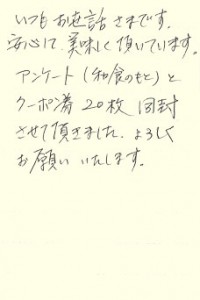 いつもお世話さまです.
安心して美味しく頂いています.
アンケート(和食のもと)と
クーポン券20枚同封
させて頂きました. よろしく
お願いいたします.